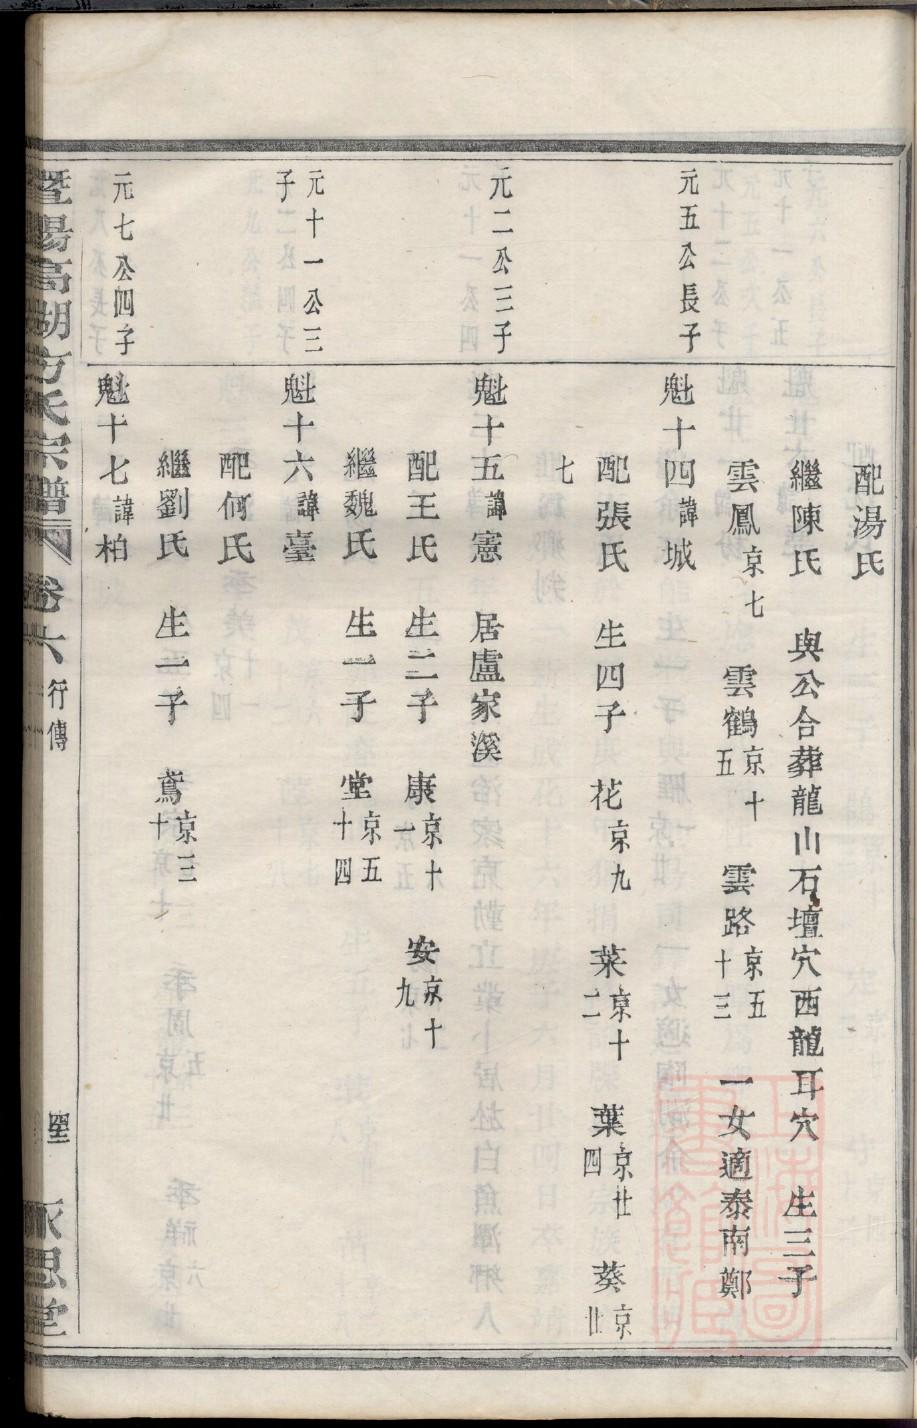 配湯氏
繼陳氏 與公合葬龍山石壇穴西龍耳穴 生三子
雲鳳京七 雲鶴京十五 雲路京五十三 一女適泰南鄭
元五公長子
魁十四諱城
配張氏 生四子 花京九 菜京十二 葉京廿四 葵京廿
七
元二公三子
魁十五諱憲 居盧家溪
配王氏 生二子 康京十一 安京十九
繼魏氏 生一子 堂京五十四
元十一公三子
魁十六諱臺
配何氏
繼劉氏 生一子 鳶京三十
元七公四子
魁十七諱柏
暨陽高湖方氏宗譜 卷六 行傳 永思堂